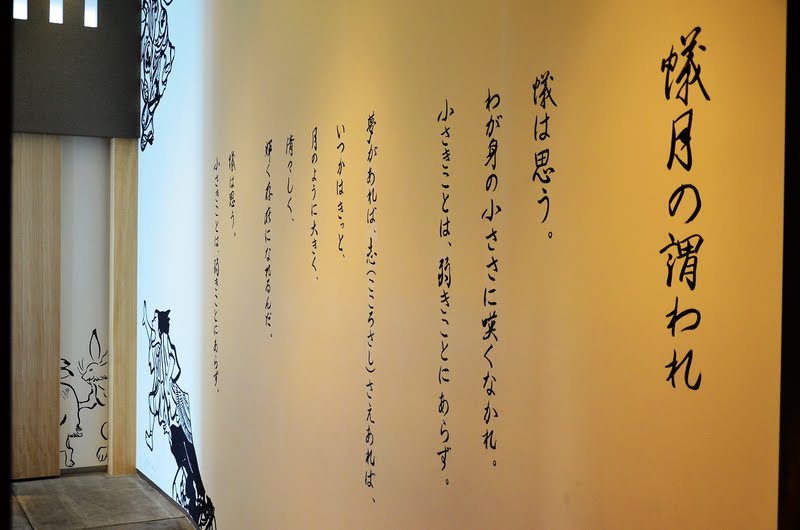 蟻月の謂われ
蟻は思う。
わが身の小ささに嘆くなかれ。
小さきことは、弱きことにあらず。
夢があれば、志(こころざし)さえあれば、
いつかはきっと、
月のように大きく、
清々しく、
輝く存在になれるんだ。
蟻は思う。
小さきことは、弱きことにあらず。